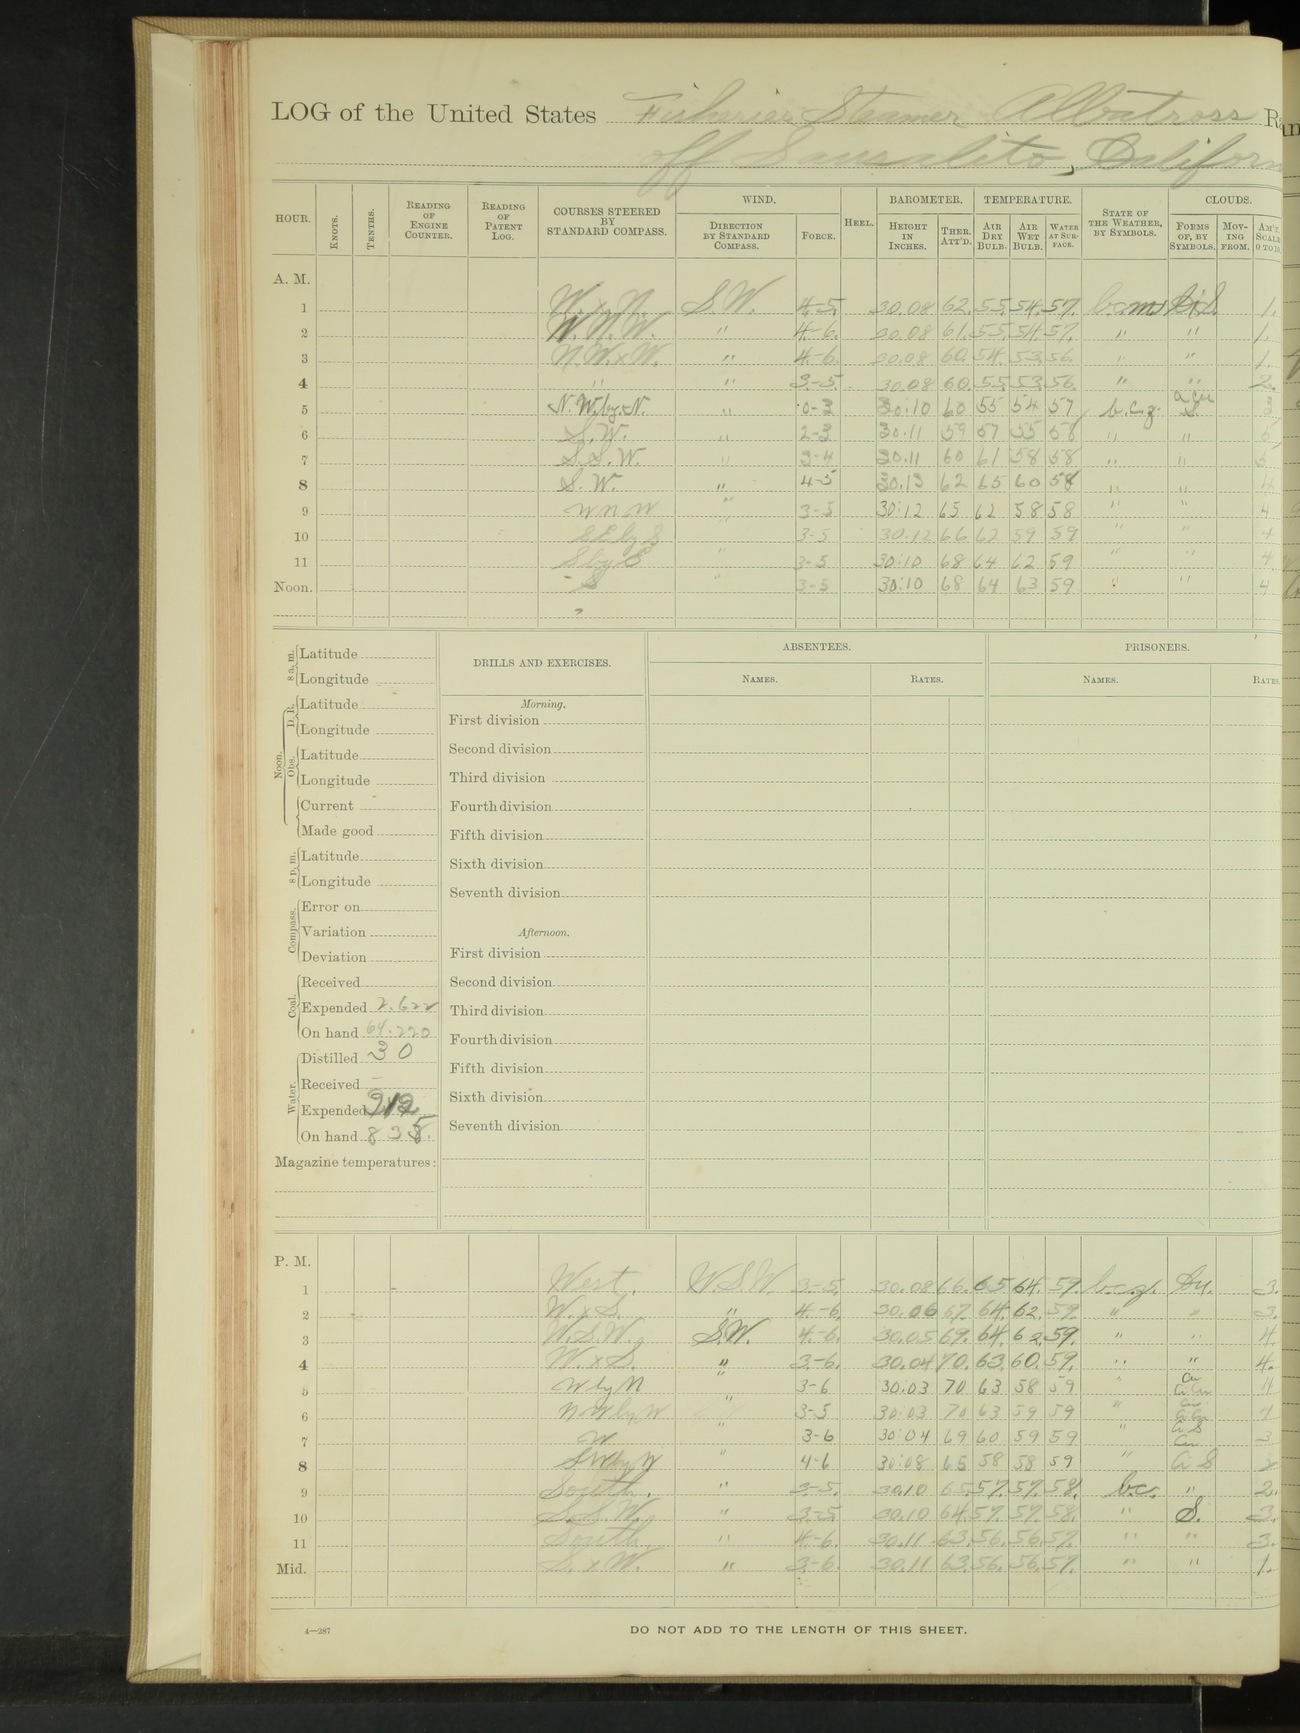 LOG of the United States Fisheries Steamer Albatross
off Sausalito, Californ
HOUR. KNOTS. TENTHS. READING OF ENGINE COUNTER. READING OF PATENT LOG. COURSES STEERED BY STANDARD COMPASS. WIND. DIRECTION BY STANDARD COMPASS. FORCE. HEEL. BAROMETER. HEIGHT IN INCHES. THER. ATT'D. TEMPERATURE. AIR DRY BULB. AIR WET BULB. WATER AT SURFACE. STATE OF THE WEATHER, BY SYMBOLS. CLOUDS. FORMS OF, BY SYMBOLS. MOVING FROM. AM'T. SCALE 0 TO 10.
A. M.
1 W. x N. S.W. 4-5. 30.08 62. 55. 54. 57. 1.
2 W.N.W. " 4-6. 30.08 61. 55. 54. 57. " " 1.
3 N.W.xW. " 4-6. 30.08 60. 54. 53. 56. " " 1.
4 " " 3-5. 30.08 60. 55. 53. 56. " " 2.
5 N.W.by.N. " 0-3 30.10 60 55 54 57 b.c.z. a cu S. 3
6 S.W. " 2-3 30.11 59 57 55 58 " " 5
7 S.S.W. " 3-4 30.11 60 61 58 58 " " 5
8 S.W. " 4-5 30.13 62 65 60 58 " " 4
9 W N W " 3-5 30:12 65 62 58 58 " " 4
10 S E by S 3-5 30.12 66 62 59 59 " " 4
11 S by E " 3-5 30:10 68 64 62 59 " " 4
Noon. S " 3-5 30:10 68 64 63 59 " " 4
8 a.m. Latitude
Longitude
Noon. D. R. Latitude
Longitude
Obs. Latitude
Longitude
Current
Made good
8 p.m. Latitude
Longitude
Compass. Error on
Variation
Deviation
Coal. Received
Expended 2.622
On hand 64.220
Water. Distilled 30
Received –
Expended 212
On hand 835.
Magazine temperatures:
DRILLS AND EXERCISES.
Morning.
First division
Second division
Third division
Fourth division
Fifth division
Sixth division
Seventh division
Afternoon.
First division
Second division
Third division
Fourth division
Fifth division
Sixth division
Seventh division
ABSENTEES.
NAMES. RATES.
PRISONERS.
NAMES. RATES.
P. M.
1 West. W.S.W. 3-5. 30.08 66. 65 64. 59. b.c.z. Cu. 3.
2 W. x S. " 4-6. 30.06 67. 64. 62. 59. " " 3.
3 W.S.W. S.W. 4-6. 30.05 69. 64. 62. 59. " " 4.
4 W. x S. " 3-6. 30.04 70. 63. 60. 59. " " 4.
5 W by N " 3-6 30:03 70 63 58 59 " Cu Ci Cu 4
6 N W by W " 3-5 30:03 70 63 59 59 " Cu. Ci Cu 4
7 W " 3-6 30:04 69 60 59 59 " Ci S Cu 3
8 S W by W " 4-6 30:08 65 58 58 59 " Ci S 2
9 South. " 3-5. 30.10 65. 57. 57. 58. b.c. " 2.
10 S.S.W. " 3-5 30.10 64. 57. 57. 58. " S. 3.
11 South. " 4-6. 30.11 63. 56. 56. 57. " " 3.
Mid. S. x W. " 3-6. 30.11 63. 56. 56. 57. " " 1.
4—287
DO NOT ADD TO THE LENGTH OF THIS SHEET.